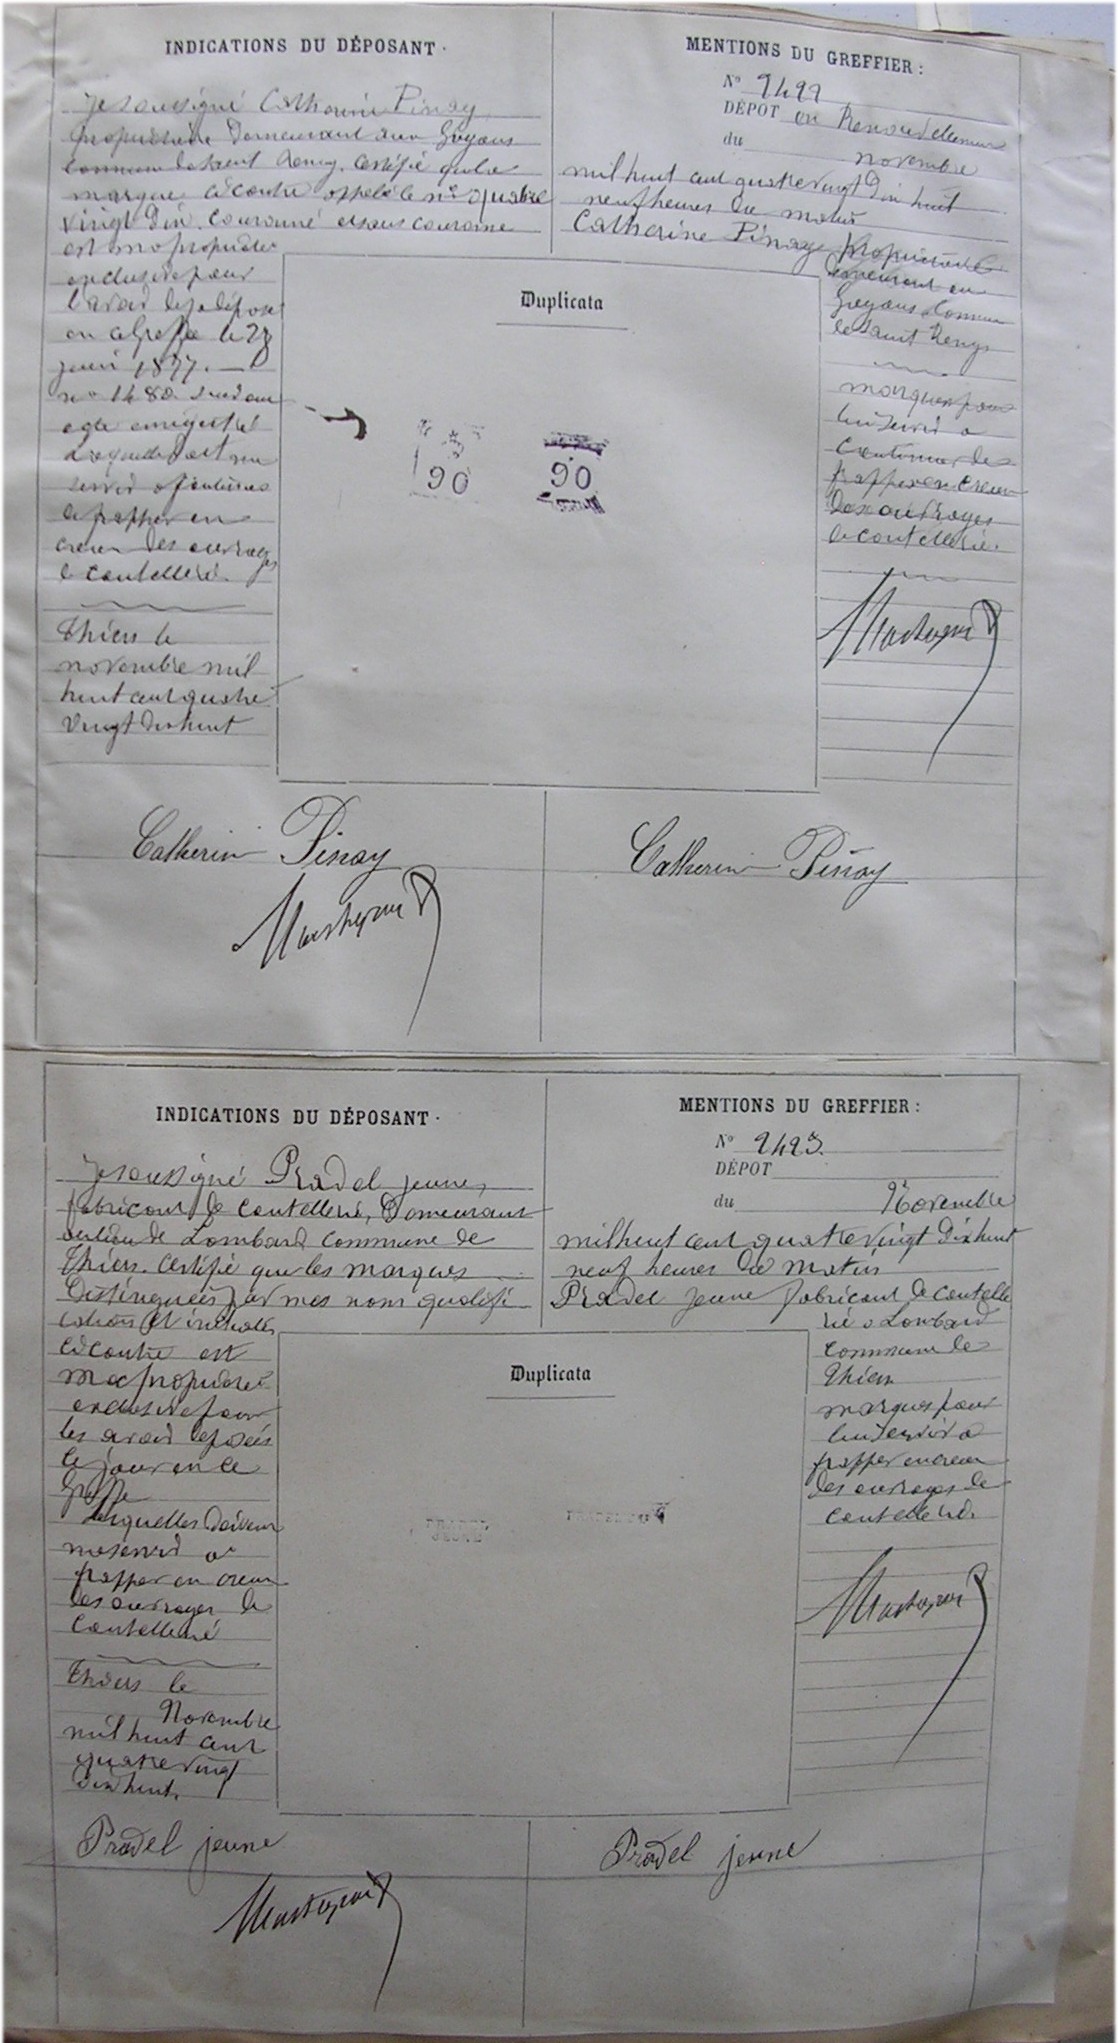 INDICATIONS DU DÉPOSANT
Je soussigné Catherine Pinay
propriétaire Demeurant aux Goyons
commune de Saint Remy. Certifie que la
marque ci contre appelé le n° quatre
vingt Dix couronné et sous couronne
est ma propriété
exclusive pour
l'avoir deja déposé
au Greffe le 28
1877.
n° 1482
enregistré
laquelle doit me
servir a continuer
de frapper en
creux des ouvrages
de coutellerie.
Thiers le
novembre mil
huit cent quatre
vingt dix huit
MENTIONS DU GREFFIER :
N° 2422
DÉPOT en Renouvellement
du novembre
mil huit cent quatre vingt Dix huit
neuf heures du matin
Catherine Pinay propriétaire
demeurant au
Goyons Commune
de Saint Remy
marque pour
lui servir a
continuer de
frapper en Creux
Des ouvrages
de coutellerie.
Duplicata
90
90
Catherine Pinay
Catherine Pinay
INDICATIONS DU DÉPOSANT
Je soussigné Pradel jeune,
fabricant de Coutellerie, Demeurant
au lieu de Lombard commune de
Thiers. Certifie que les marques
Distinguées par mes nom qualifi
cations et initiales
ci contre est
ma propriété
exclusive pour
les avoir déposés
ce jour en ce
Greffe
lesquelles doivent
me servir a
frapper en creux
des ouvrages de
Coutellerie
Thiers le
Novembre
mil huit cent
quatre vingt
dix huit.
MENTIONS DU GREFFIER :
N° 2423.
DÉPOT
du Novembre
mil huit cent quatre vingt Dix huit
neuf heures du matin
Pradel jeune fabricant de Coutelle
rie a Lombard
commune de
Thiers
marques pour
lui servir a
frapper en creux
des ouvrages de
coutellerie.
Duplicata
PRADEL
JEUNE
Pradel jeune
Pradel jeune